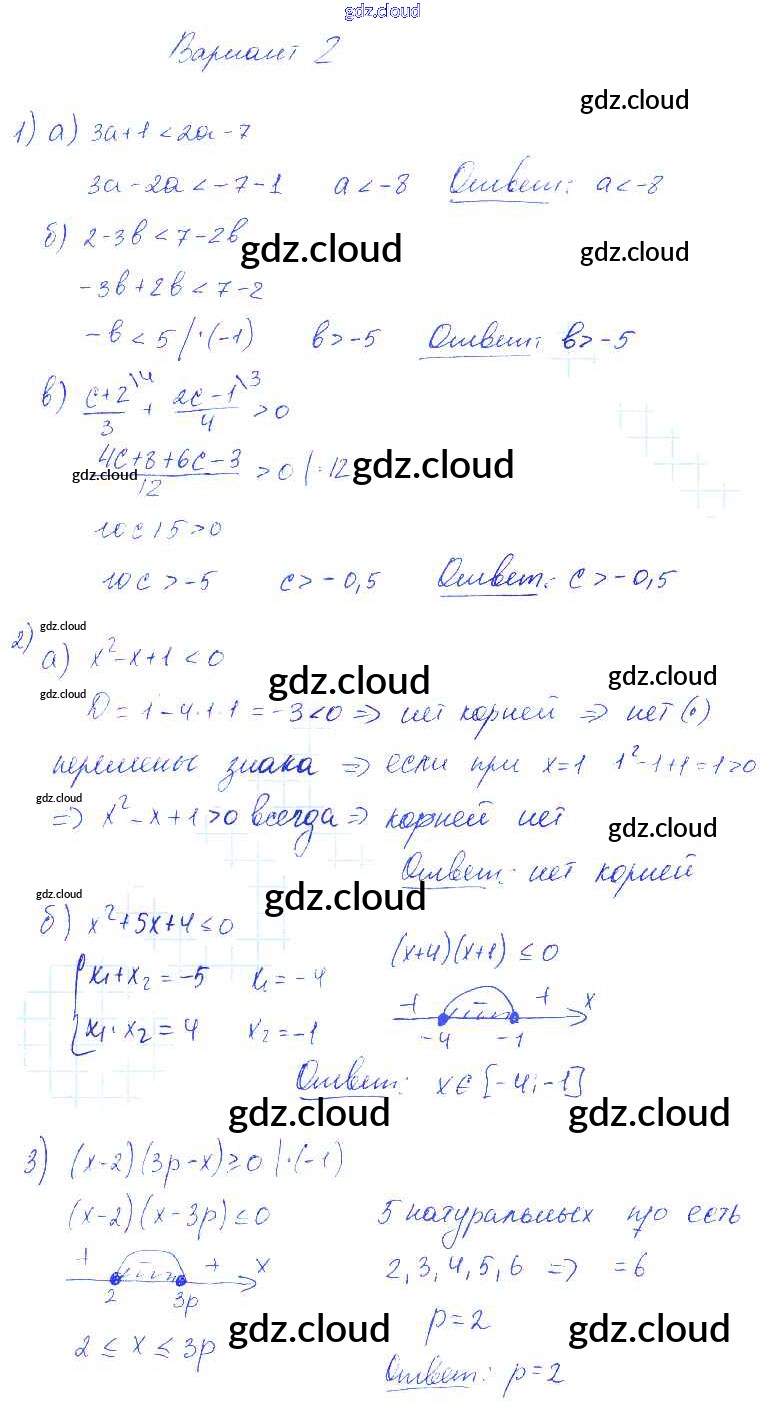 gdz.cloud
Вариант 2
gdz.cloud
1) а) 3a+1<2a-7
3a-2a<-7-1 a<-8 Ответ: a<-8
б) 2-3b<7-2b
gdz.cloud gdz.cloud
-3b+2b<7-2
-b<5 |·(-1) b>-5 Ответ: b>-5
в) (c+2)/3 \4 + (2c-1)/4 \3 >0
(4c+8+6c-3)/12 >0 |·12
gdz.cloud gdz.cloud
10c+5>0
10c>-5 c>-0,5 Ответ: c>-0,5
gdz.cloud
2) а) x²-x+1<0
gdz.cloud gdz.cloud gdz.cloud
D=1-4·1·1=-3<0 => нет корней => нет (·)
перемены знака => если при x=1 1²-1+1=1>0
gdz.cloud
=> x²-x+1>0 всегда => корней нет
gdz.cloud
Ответ: нет корней
gdz.cloud gdz.cloud
б) x²+5x+4≤0
x₁+x₂=-5 x₁=-4 (x+4)(x+1)≤0
x₁·x₂=4 x₂=-1
+ - + x
-4 -1
Ответ: x∈[-4;-1]
gdz.cloud gdz.cloud
3) (x-2)(3p-x)≥0 |·(-1)
(x-2)(x-3p)≤0 5 натуральных то есть
+ - + x 2,3,4,5,6 => =6
2 3p
gdz.cloud p=2 gdz.cloud
2≤x≤3p
Ответ: p=2